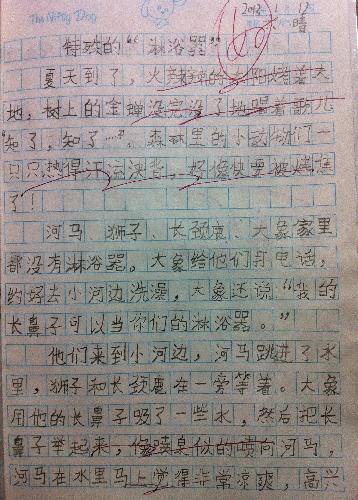 The Noisy Dog
晴
特殊的"淋浴器"
夏天到了,火辣辣的太阳烤着大
地,树上的金蝉没完没了地唱着歌儿
"知了,知了…"。森林里的小动物们一
只只热得汗流浃背,好像快要被烤焦
了!
河马、狮子、长颈鹿、大象家里
都没有淋浴器。大象给他们打电话,
约好去小河边洗澡,大象还说"我的
长鼻子可以当你们的淋浴器。"
他们来到小河边,河马跳进了水
里,狮子和长颈鹿在一旁等着。大象
用他的长鼻子吸了一些水,然后把长
鼻子举起来,像喷泉似的喷向河马,
河马在水里马上觉得非常凉爽,高兴